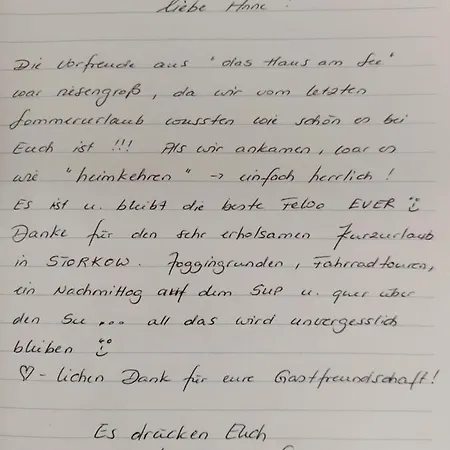 liebe Anne!
Die Vorfreude aus "das Haus am See"
war riesengroß, da wir vom letzten
Sommerurlaub wussten wie schön es bei
Euch ist !!! Als wir ankamen, war es
wie "heimkehren" -> einfach herrlich!
Es ist u. bleibt die beste FeWo EVER
Danke für den sehr erholsamen Kurzurlaub
in STORKOW. Joggingrunden, Fahrradtouren,
ein Nachmittag auf dem SUP u. quer über
den See ... all das wird unvergesslich
bleiben
♡-lichen Dank für eure Gastfreundschaft!
Es drücken Euch